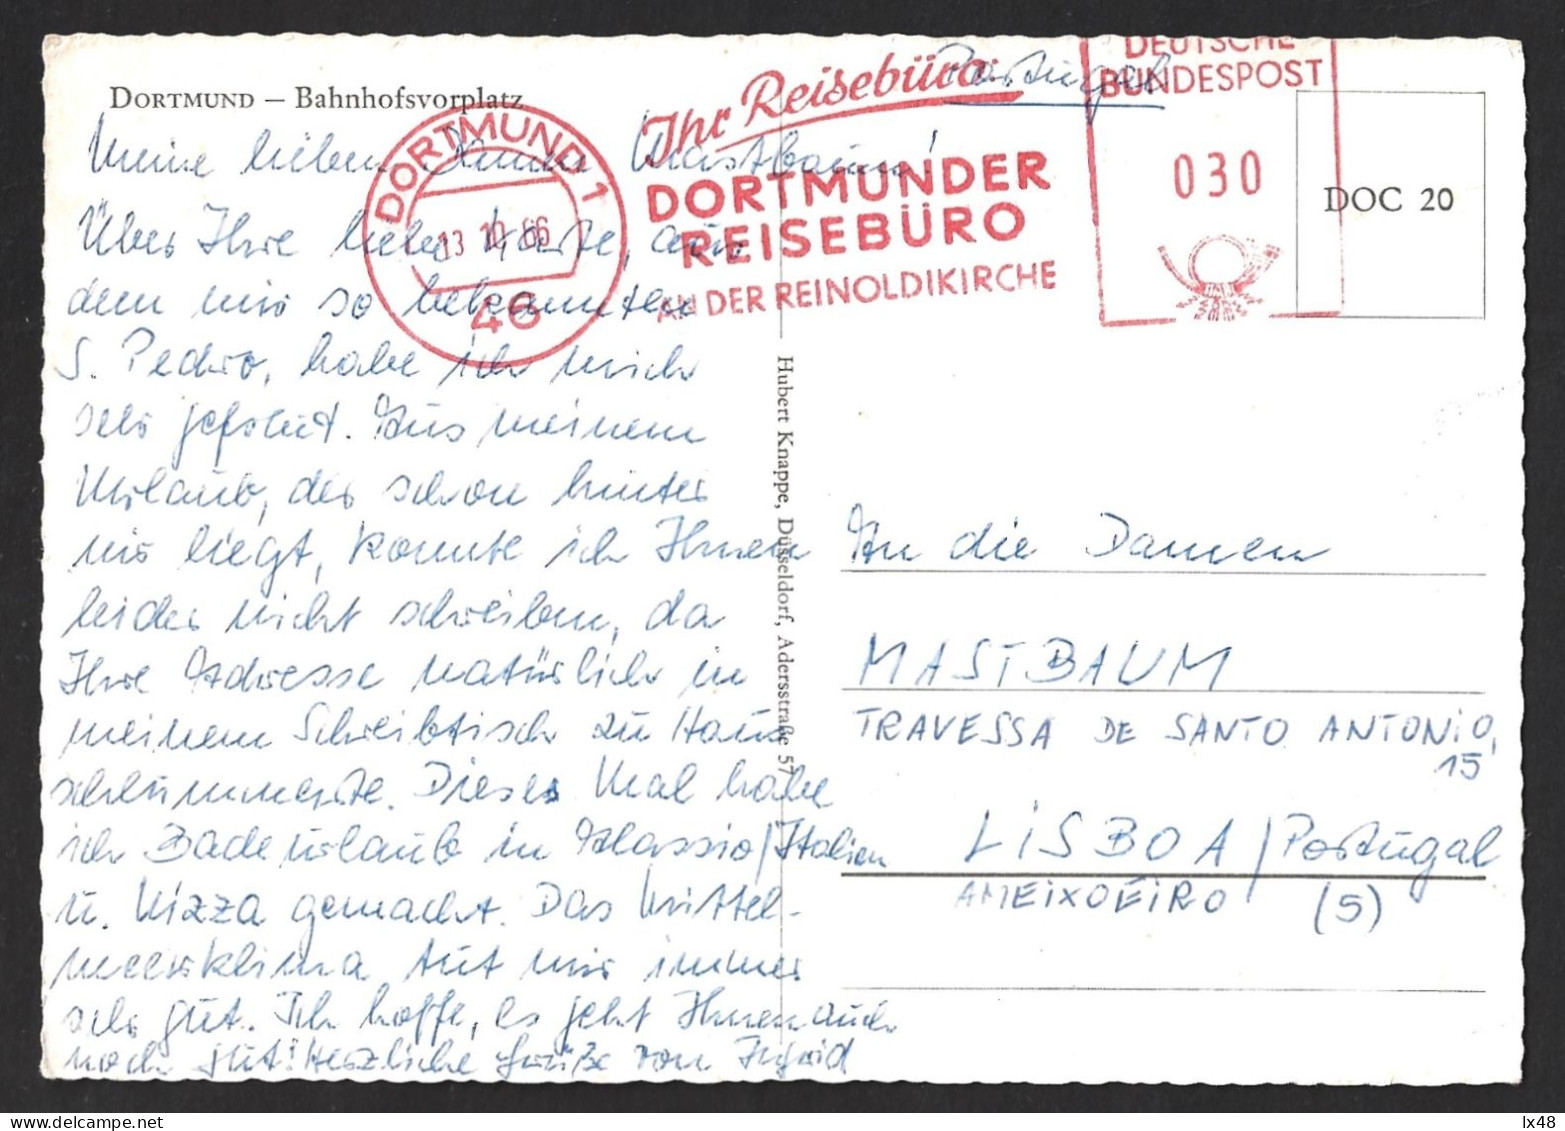 DORTMUND – Bahnhofsvorplatz
Meine lieben Damen Mastbaum!
Über Ihre liebe Karte, aus
dem mir so bekannten
S. Pedro, habe ich mich
sehr gefreut. Aus meinem
Urlaub, der schon hinter
mir liegt, konnte ich Ihnen
leider nicht schreiben, da
Ihre Adresse natürlich in
meinem Schreibtisch zu Haus
schlummerte. Dieses Mal habe
ich Badeurlaub in Alassio/Italien
u. Nizza gemacht. Das Mittel-
meerklima tut mir immer
sehr gut. Ich hoffe, es geht Ihnen auch
noch gut! Herzliche Grüße von Ingrid
DORTMUND 1
13.10.66
46
Ihr Reisebüro:
DORTMUNDER
REISEBÜRO
AN DER REINOLDIKIRCHE
Portugal
DEUTSCHE
BUNDESPOST
030
DOC 20
Hubert Knappe, Düsseldorf, Adersstraße 57
An die Damen
MASTBAUM
TRAVESSA DE SANTO ANTONIO,
15
LISBOA / Portugal
AMEIXOEIRO (5)
lx48